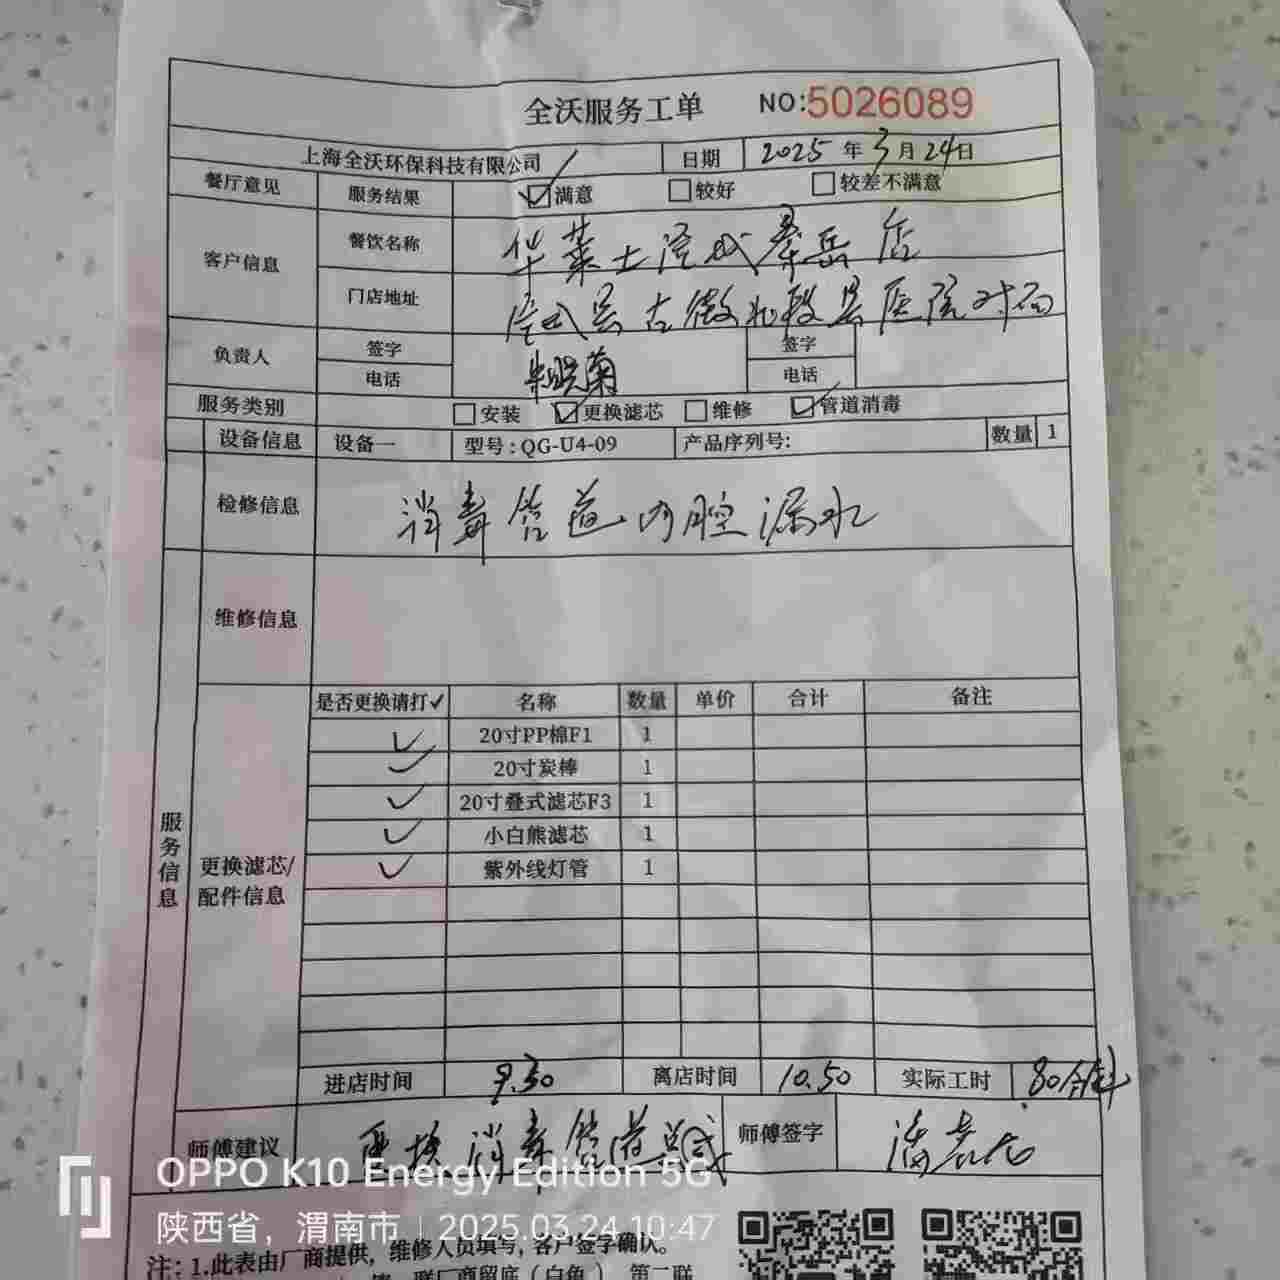 全沃服务工单 NO:5026089
上海全沃环保科技有限公司 日期 2025年3月24日
餐厅意见 服务结果 满意 较好 较差不满意
客户信息 餐饮名称 华莱士澄城秦岳店
门店地址 澄城县古徵北段县医院对面
负责人 签字 签字
电话 电话
服务类别 安装 更换滤芯 维修 管道消毒
设备信息 设备一 型号:QG-U4-09 产品序列号: 数量 1
检修信息 消毒管道内腔漏水
维修信息
服务信息
更换滤芯/配件信息
是否更换请打✓ 名称 数量 单价 合计 备注
✓ 20寸PP棉F1 1
✓ 20寸炭棒 1
✓ 20寸叠式滤芯F3 1
✓ 小白熊滤芯 1
✓ 紫外线灯管 1
进店时间 9.30 离店时间 10.50 实际工时 80分钟
师傅建议 更换消毒管道总成 师傅签字
OPPO K10 Energy Edition 5G
陕西省，渭南市 | 2025.03.24 10:47
注：1.此表由厂商提供，维修人员填写，客户签字确认。
联厂商留底（白色），第二联